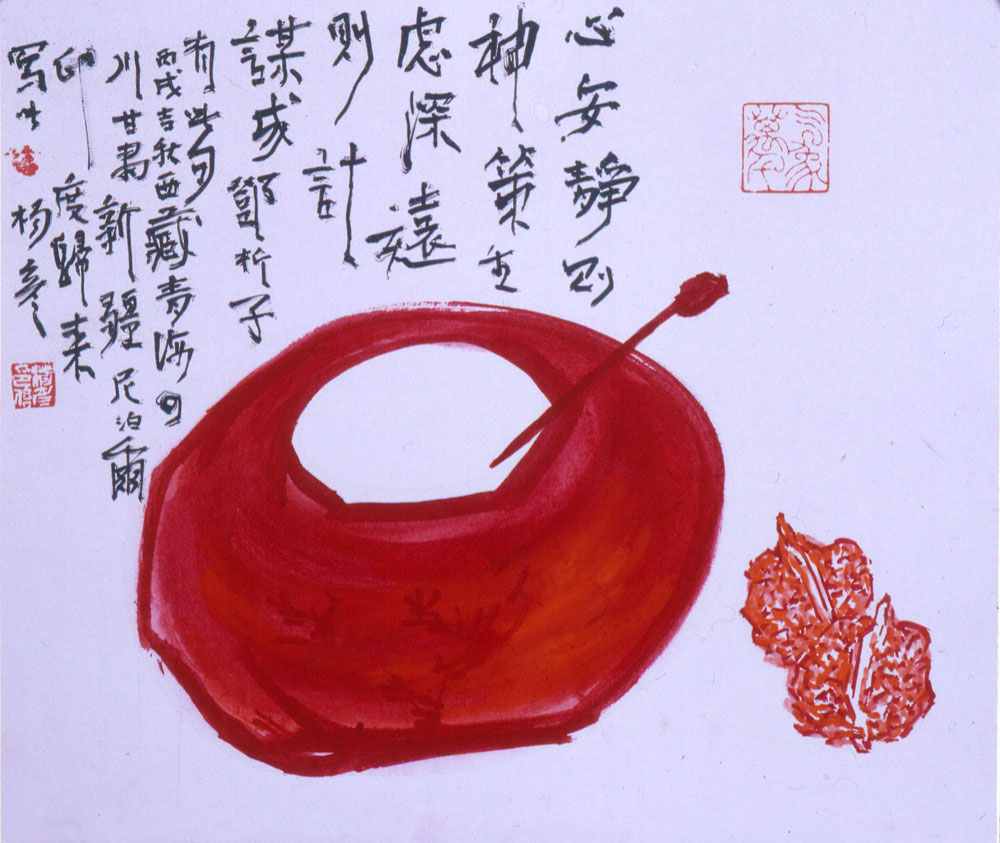 心安靜則
神策生
慮深遠
則計
謀成鄧析子
有此句
丙戌吉秋西藏青海四
川甘肅新疆尼泊爾
印度歸來
寫生楊彥